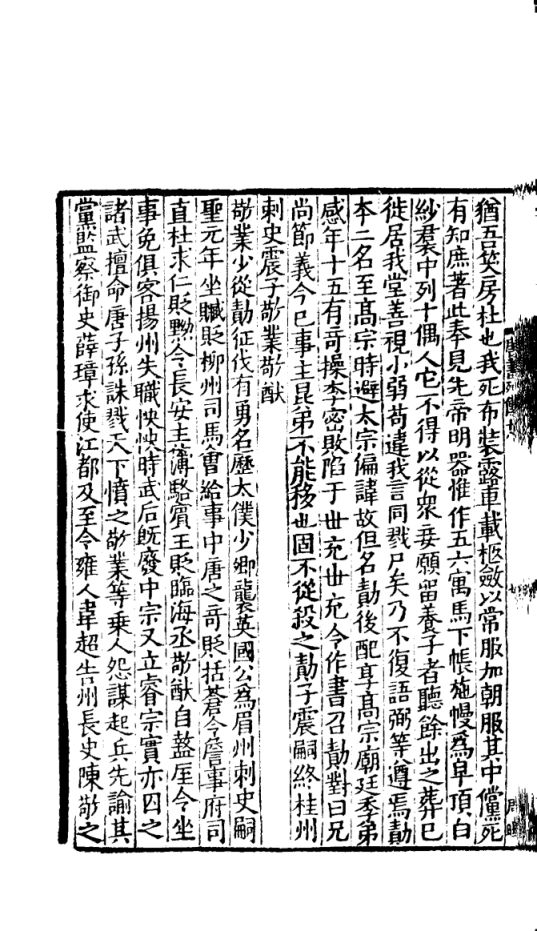 猶吾笑房杜也我死布裝露車載柩斂以常服加朝服其中儻死
有知庶著此奉見先帝明器惟作五六寓馬下帳施幔為皁頂白
紗裙中列十偶人它不得以從衆妾願留養子者聽餘出之葬已
徙居我堂善視小弱苟違我言同戮尸矣乃不復語弼等遵焉勣
本二名至高宗時避太宗偏諱故但名勣後配享高宗廟廷季弟
感年十五有奇操李密敗陷于世充世充令作書召勣對曰兄
尚節義今已事主昆弟不能移也固不從殺之勣子震嗣終桂州
刺史震子敬業敬猷
敬業少從勣征伐有勇名歷太僕少卿襲英國公為眉州刺史嗣
聖元年坐贓貶柳州司馬會給事中唐之奇貶括蒼令詹事府司
直杜求仁貶黟令長安主簿駱賓王貶臨海丞敬猷自盩厔令坐
事免俱客揚州失職怏怏時武后旣廢中宗又立睿宗實亦囚之
諸武擅命唐子孫誅戮天下憤之敬業等乘人怨謀起兵先諭其
黨監察御史薛璋求使江都及至令雍人韋超告州長史陳敬之